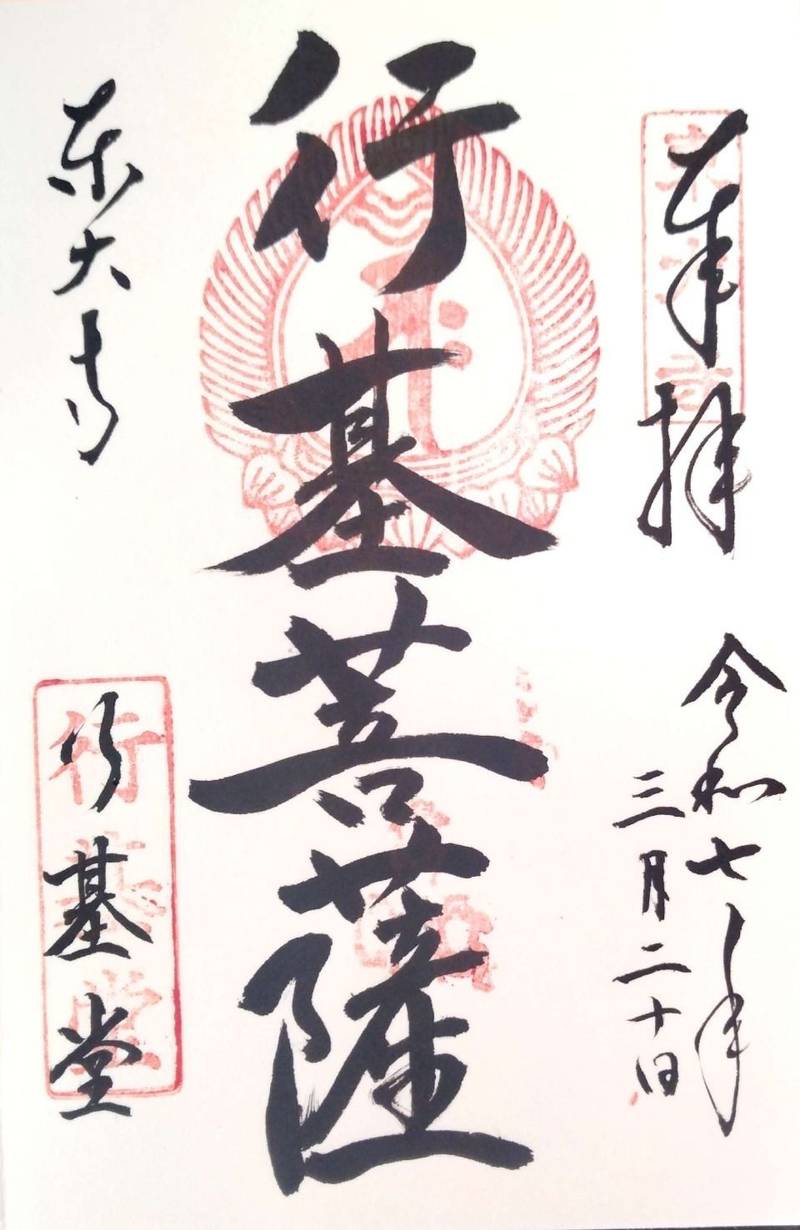 奉拝
令和七年
三月二十日
行基菩薩
東大寺
行基堂
行基堂